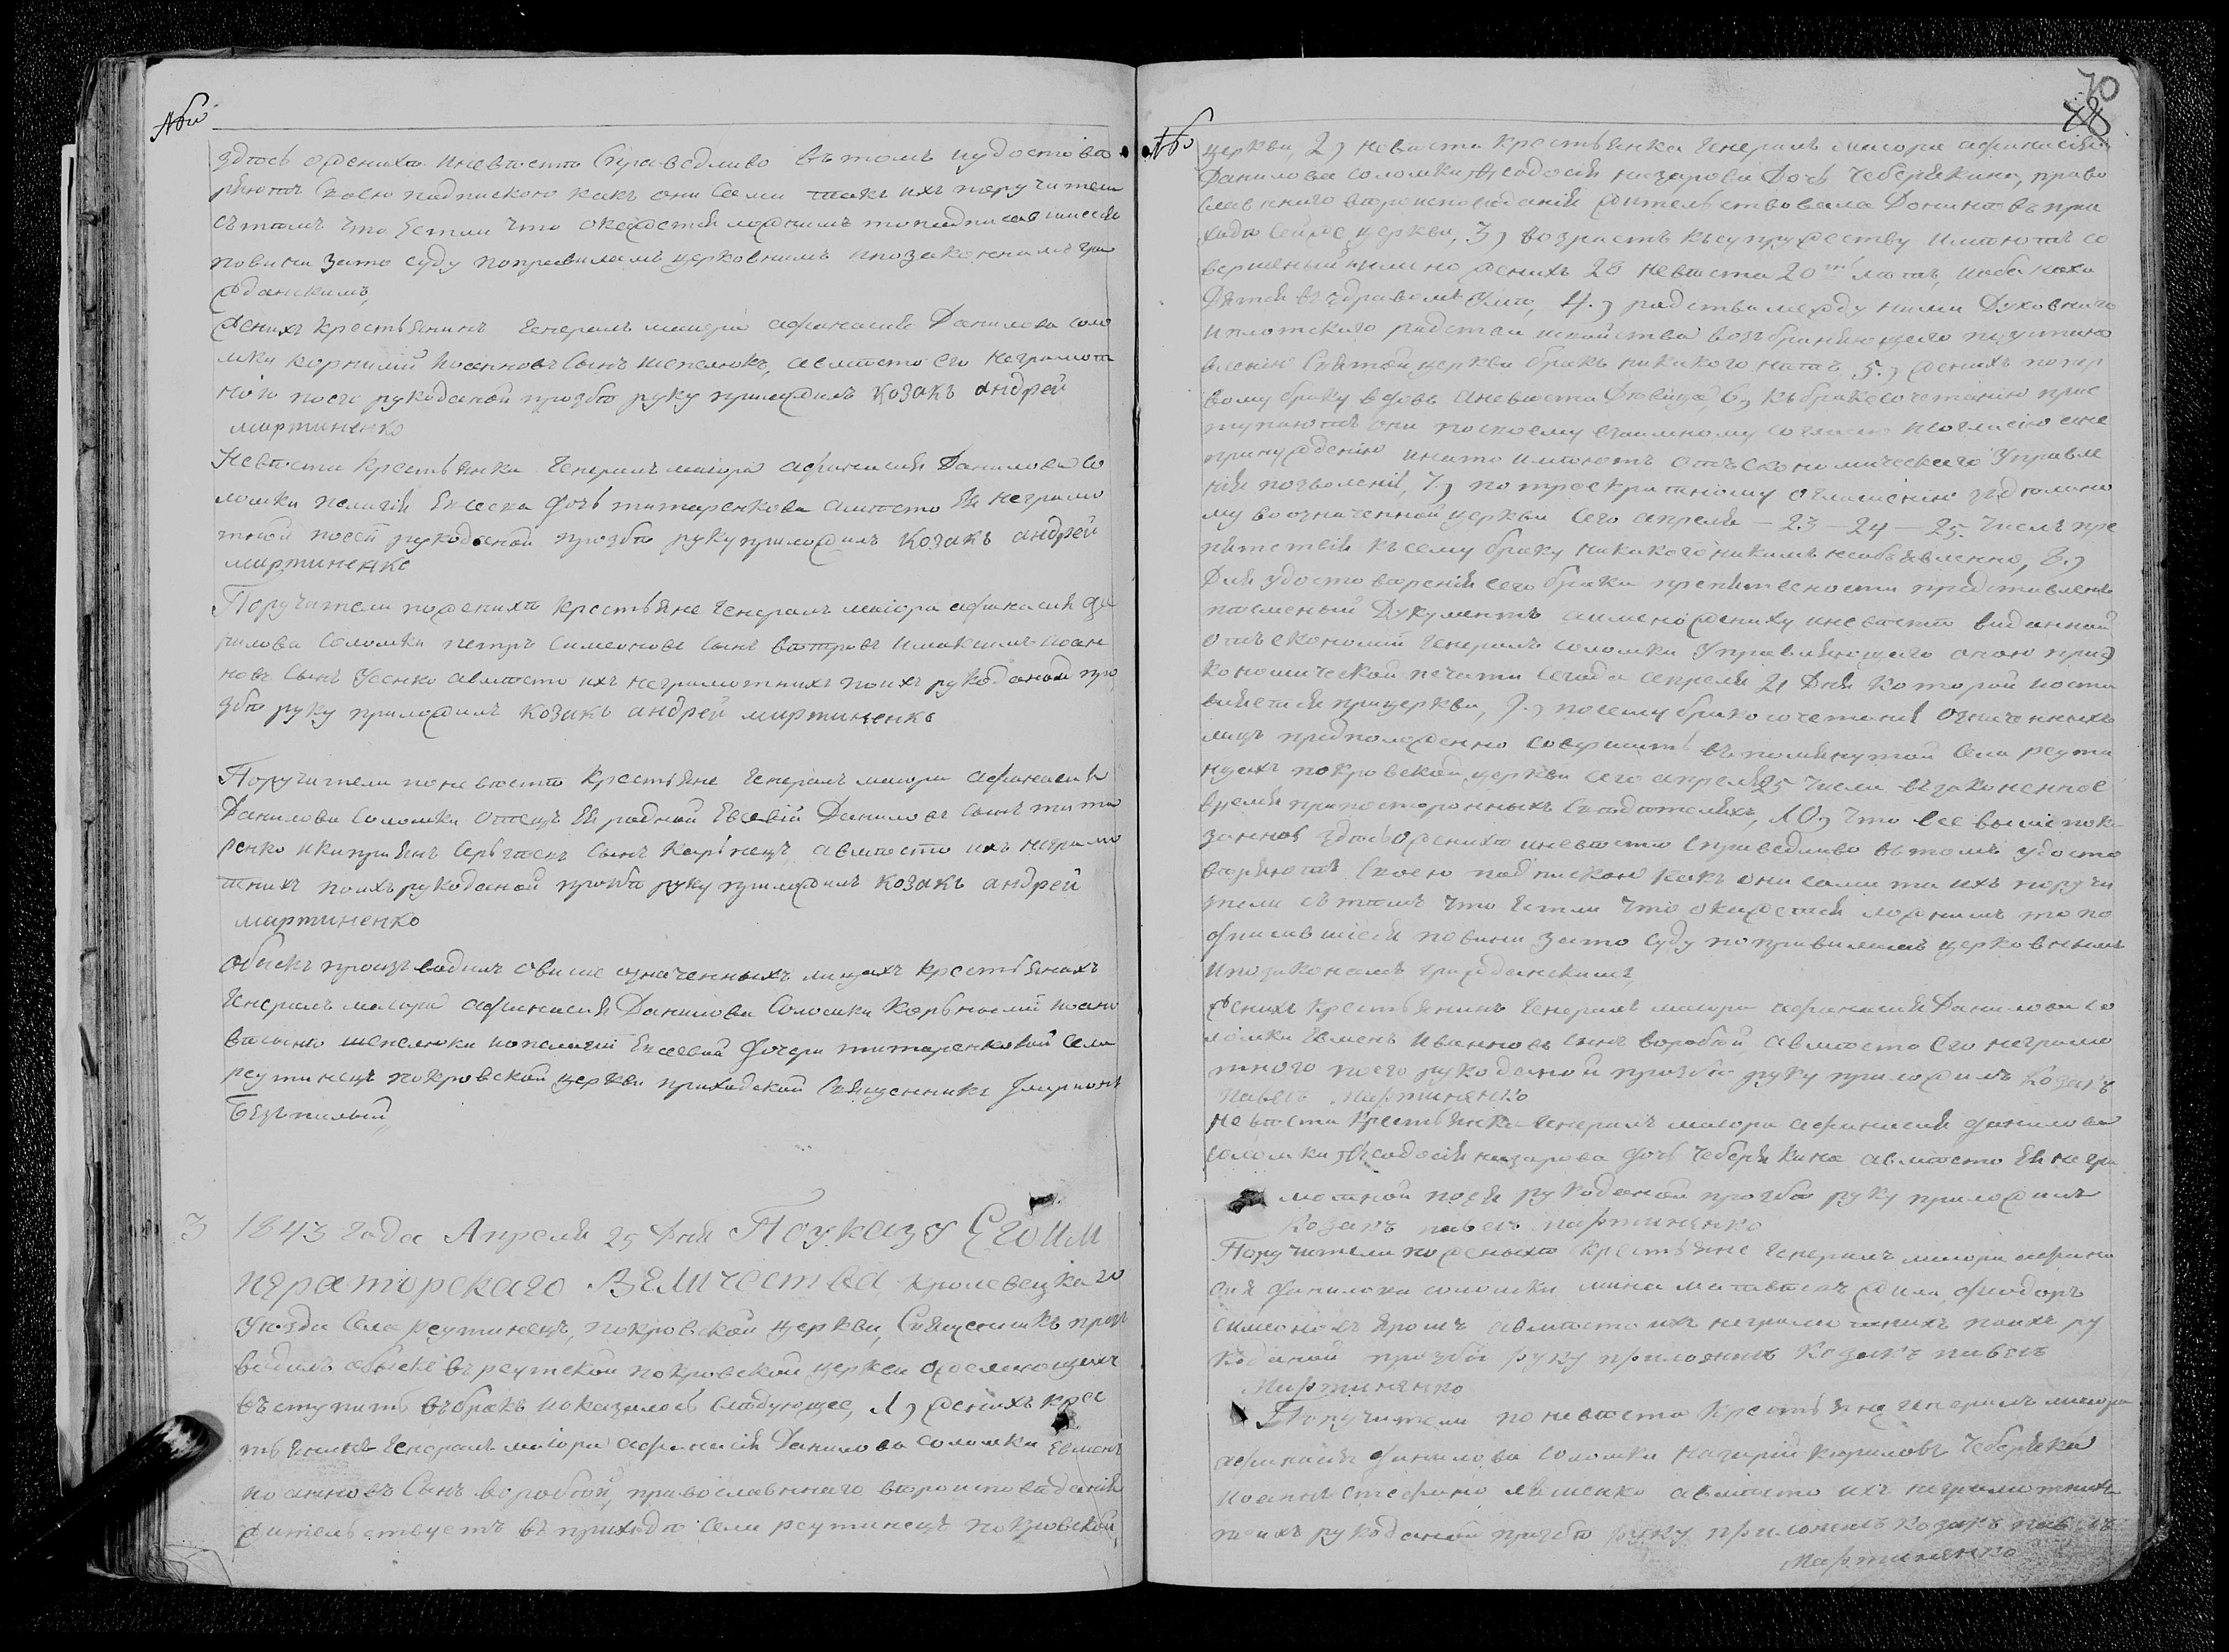 здесь о женихѣ и невѣстѣ справедливо въ томъ и удостовѣ
ряютъ своею подпискою какъ они сами такъ ихъ поручители
съ тѣмъ что естли что окажется ложнимъ то подписавшиеся
повини зато суду поправиламъ церковнимъ и позаконамъ гра
жданскимъ,
женихъ крестьянинъ генералъ маиора афанасия Данилова соло
мки корнилий Иоанновъ сынъ шепелюкъ, авмѣсто его неграмота
ного поего рукоданой прозбѣ руку приложилъ козакъ андрей
мартиненко
Невѣста крестьянка генералъ маиора афанасия Данилова со
ломки пелагия дочь титаренкова авмѣсто ея неграмо
тной поея рукоданой прозбѣ руку приложилъ козакъ андрей
мартиненко
Поручители поженихѣ крестьяне генералъ маиора афанасия да
нилова соломки петръ симеоновъ сынъ и максимъ иоан
новъ сынъ Усенко авмѣсто ихъ неграмотнихъ поихъ рукоданой про
збѣ руку приложилъ козакъ андрей мартиненко
Поручители поневѣстѣ крестьяне генералъ маиора афанасия
Данилова соломки отецъ ея родной Евсевий Даниловъ сынъ тита
ренко и киприянъ сынъ авмѣсто ихъ неграмо
тнихъ поихъ рукоданой прозбѣ руку приложилъ козакъ андрей
мартиненко
обискъ производилъ овише означенныхъ лицахъ крестьянахъ
генералъ маиора афанасия Данилова Соломки Корнилий иоано
вѣ сынѣ шепелюки и о пелагии дочери титаренковой села
реутинецъ покровской церкви приходской священникъ
3 1843 года Апреля 25 дня По указу Его им
ператорскаго Величества кролевецкаго
уезда села реутинецъ, покровской церкви, священникъ произ
водилъ обыскъ въ реутской покровской церкви о желающихъ
вступить въ бракъ и оказалось следующее, 1, женихъ крес
тьянинъ генералъ маиора афанасия Данилова соломки Евменъ
иоанновъ сынъ воробѣй, православнаго вероисповедания
жительствуетъ въ приходѣ села реутинецъ покровской
70
церкви, 2, невѣста крестьянка генералъ маиора афанасия
Данилова соломки Феодосия назарова дочь Чеберякина, право
славнаго вероисповедания жительствовала донинѣ въ при
ходѣ сейже церкви, 3, возрастъ къ супружеству имѣютъ со
вершеный именно женихъ 28 невѣста 20ть лѣтъ, иоба нахо
дятся въ здравомъ умѣ, 4, родства между ними духовнаго
и плотскаго родства и свойства возбраняющаго поустано
влению святой церкви бракъ никакого нетъ, 5, женихъ попер
вому браку вдовъ аневѣста девица, 6, къ бракосочетанию прис
тупаютъ они посвоему взаимному согласию и желанию не
принуждению инато имѣютъ отъ економическаго Управле
ния позволение, 7, по троекратному оглашению зделано
му возначенной церкви сего апреля 23 24 25 числъ пре
пятствия къ сему браку никакого никимъ необъявленно, 8,
Для удостоверения сего брака представленъ
писменый Документъ а именно жениху и невѣстѣ виданной
отъ економии генерала соломки Управляющаго оною при э
кономической печати сегода апреля 21 дня которой и оста
вляется прицеркви, 9, посему бракосочетание означенныхъ
лицъ предположенно совершить въ помянутой села реути
нцахъ покровской церкви сего апреля 25 числа въ законенное
время припосторонныхъ свидетеляхъ, 10, что все выше пока
занное здесь о женихѣ и невѣстѣ справедливо въ томъ удосто
веряютъ своею подпискою какъ они сами та ихъ поручи
тели съ тѣмъ что естли что окажется ложнимъ то по
дписавшиеся повини зато суду поправиламъ церковнымъ
и позаконамъ гражданскимъ,
женихъ крестьянинъ генералъ маиора афанасия Данилова со
ломки Евменъ Иванновъ сынъ воробѣй, авмѣсто его неграмо
тного поего рукоданой прозбѣ руку приложилъ козакъ
павелъ мартиненко
невѣста крестьянка генералъ маиора афанасия данилова
соломки Феодосия назарова дочь чеберякина авмѣсто ея негра
мотной поея рукоданой прозбѣ руку приложилъ
козакъ павелъ мартиненко
Поручители поженыхѣ крестьяне генералъ маиора афана
сия данилова соломки мина феодоръ
симеоновъ авмѣсто ихъ неграмотнихъ поихъ ру
коданой прозбѣ руку приложилъ козакъ павелъ
мартиненко
Поручители поневѣстѣ крестьяне генералъ маиора
афанасия данилова соломки назарий кириловъ чеберяка
иоанъ ляшенко авмѣсто ихъ неграмотнихъ
поихъ рукоданой прозбѣ руку приложилъ козакъ павелъ
мартиненко